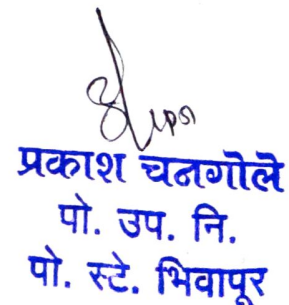 प्रकाश चनगोले
पो. उप. नि.
पो. स्टे. भिवापूर